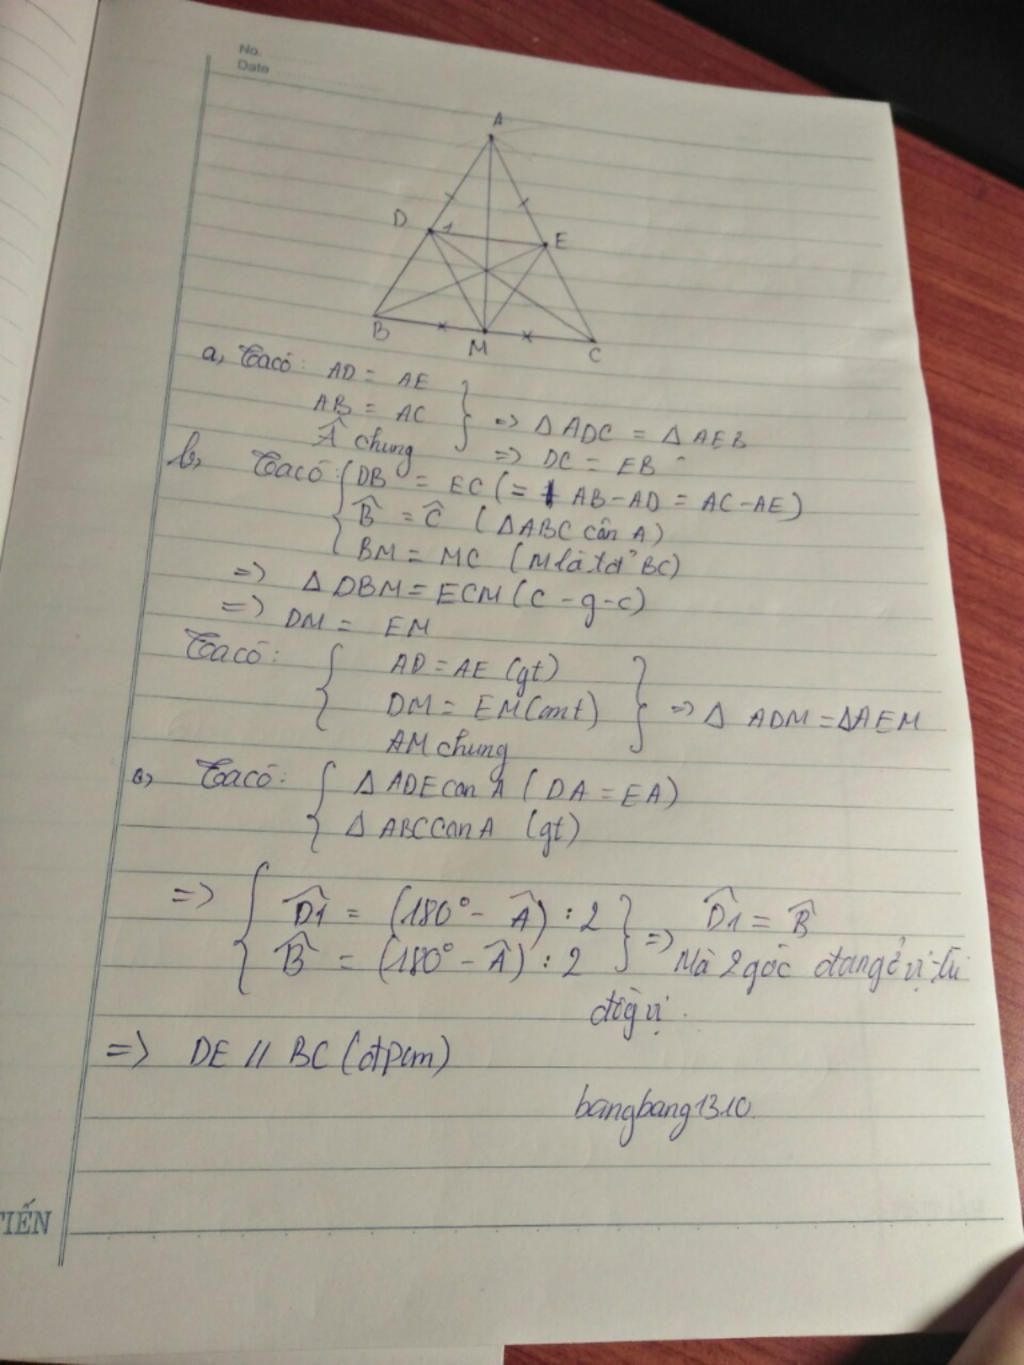 No.
Date
A
D 1 E
B M C
a, Ta có: AD = AE
AB = AC
Â chung
=> Δ ADC = Δ AEB
=> DC = EB
b, Ta có: DB = EC (= AB-AD = AC-AE)
B̂ = Ĉ (ΔABC cân A)
BM = MC (M là tđ BC)
=> Δ DBM = ECM (c-g-c)
=> DM = EM
Ta có: AD = AE (gt)
DM = EM (cmt) => Δ ADM = ΔAEM
AM chung
c, Ta có: Δ ADE cân A (DA = EA)
Δ ABC cân A (gt)
=> D̂1 = (180° - Â) : 2
B̂ = (180° - Â) : 2
=> D̂1 = B̂
Mà 2 góc đang ở vị trí
đồg vị.
=> DE // BC (đpcm)
bangbang1310
TIẾN